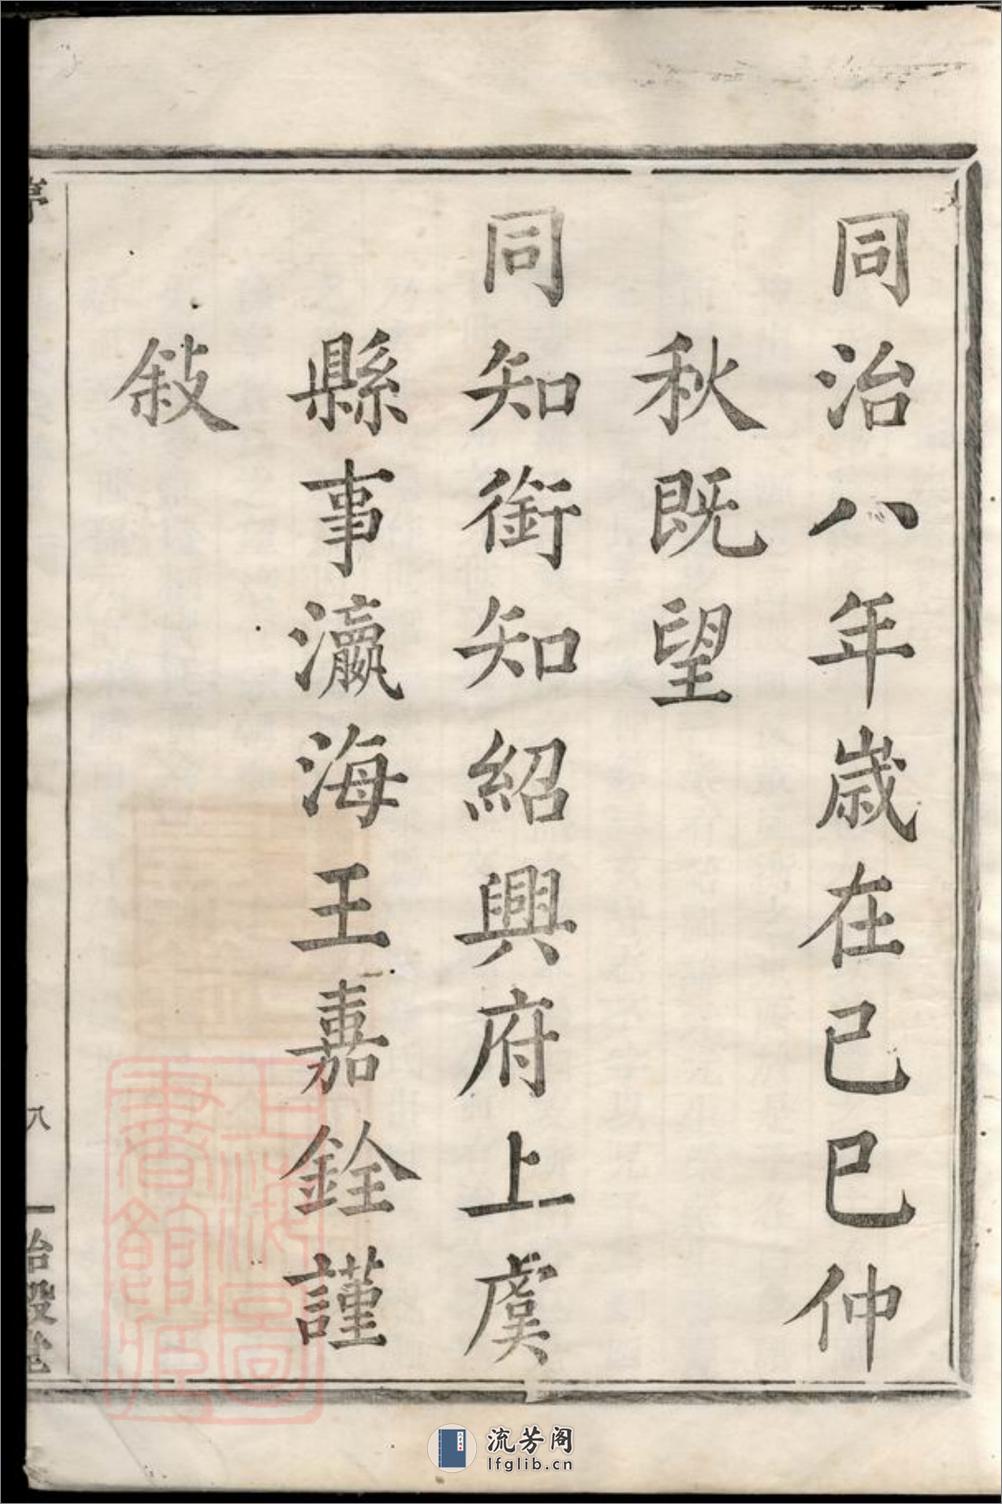 同治八年歲在己巳仲
秋既望
同知銜知紹興府上虞
縣事瀛海王嘉銓謹
敍
八
上海圖書館藏
流芳阁
lfglib.cn